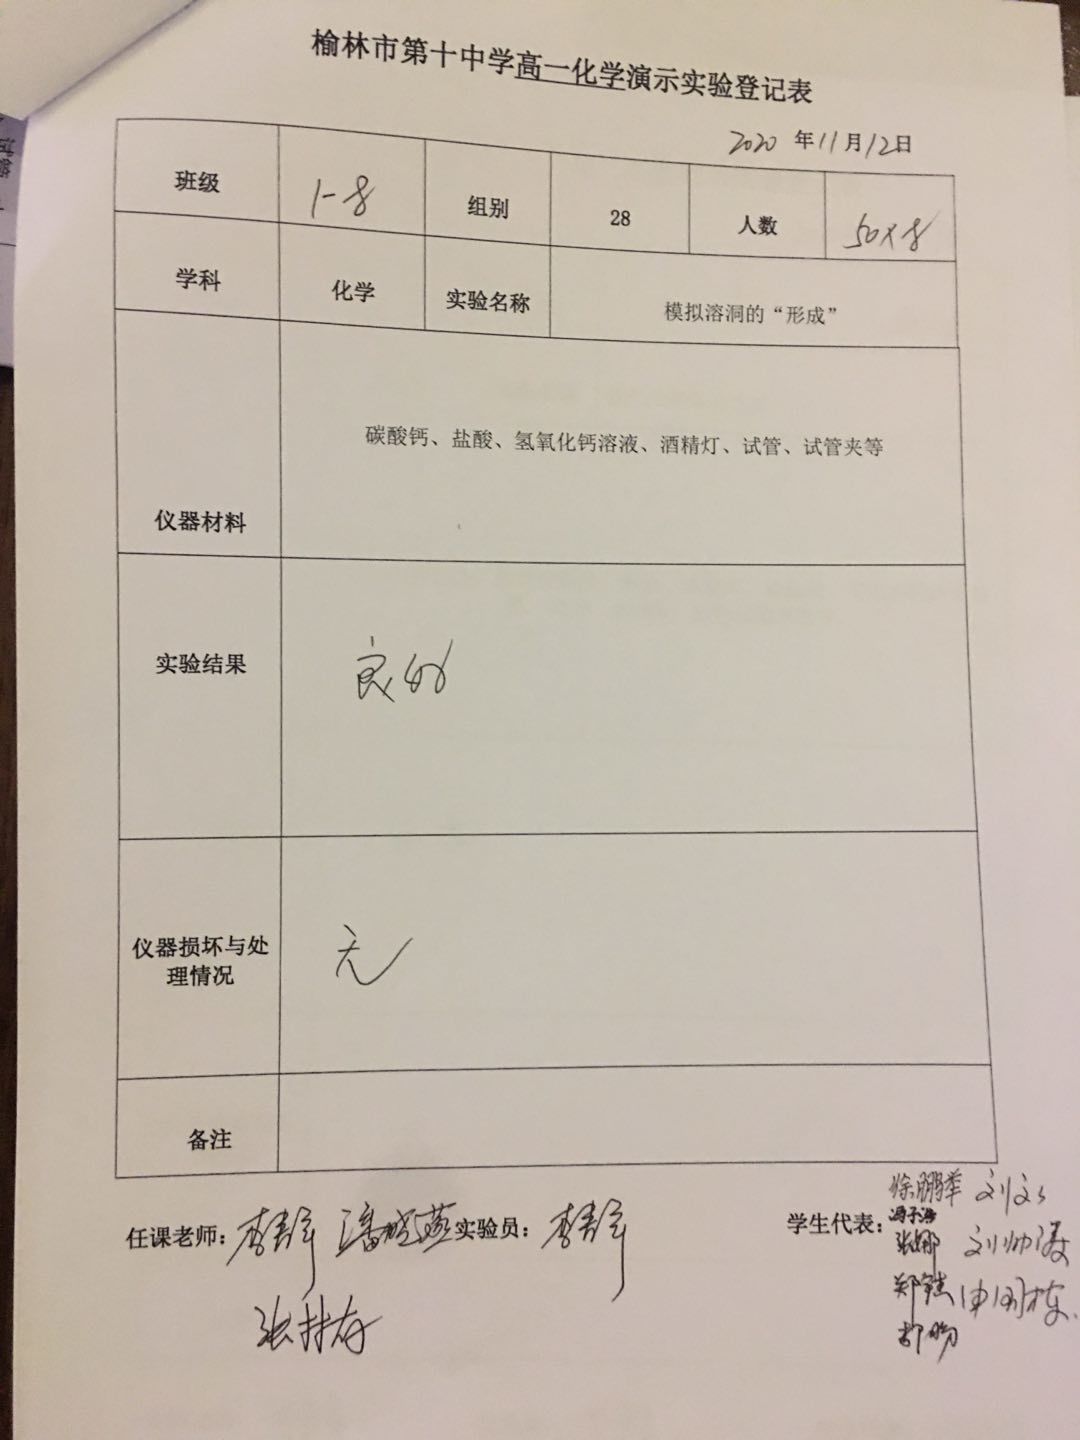 榆林市第十中学高一化学演示实验登记表
2020 年 11 月 12 日
班级 1-8 组别 28 人数 50×8
学科 化学 实验名称 模拟溶洞的“形成”
仪器材料 碳酸钙、盐酸、氢氧化钙溶液、酒精灯、试管、试管夹等
实验结果 良好
仪器损坏与处
理情况 无
备注
任课老师： 实验员： 学生代表：